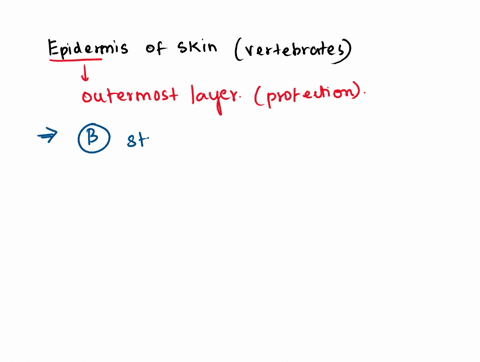 Epidermis of skin (vertebrates)
↓
outermost layer. (protection).
→ B st